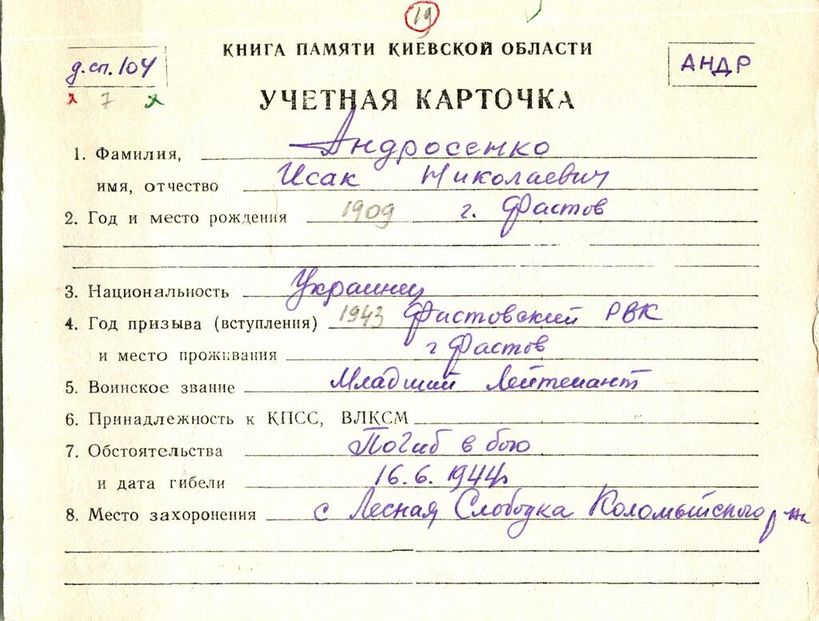 19
КНИГА ПАМЯТИ КИЕВСКОЙ ОБЛАСТИ
д.сп. 104
АНДР
7
УЧЕТНАЯ КАРТОЧКА
1. Фамилия, Андросенко
имя, отчество Исак Николаевич
2. Год и место рождения 1909 г. Фастов
3. Национальность Украинец
4. Год призыва (вступления) 1943 Фастовский РВК
и место проживания г Фастов
5. Воинское звание Младший Лейтенант
6. Принадлежность к КПСС, ВЛКСМ
7. Обстоятельства Погиб в бою
и дата гибели 16.6.1944г
8. Место захоронения с Лесная Слободка Коломыйского р-на